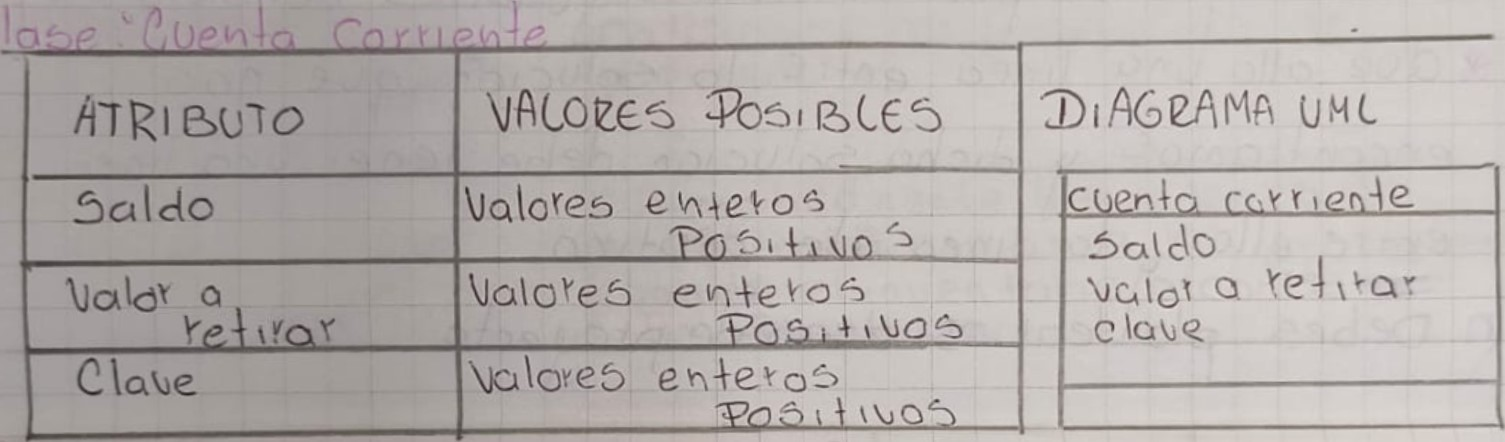 lase "Cuenta Corriente
ATRIBUTO VALORES POSIBLES DIAGRAMA UML
Saldo Valores enteros
Positivos
Valor a
retirar Valores enteros
Positivos
Clave Valores enteros
Positivos
cuenta corriente
Saldo
valor a retirar
clave